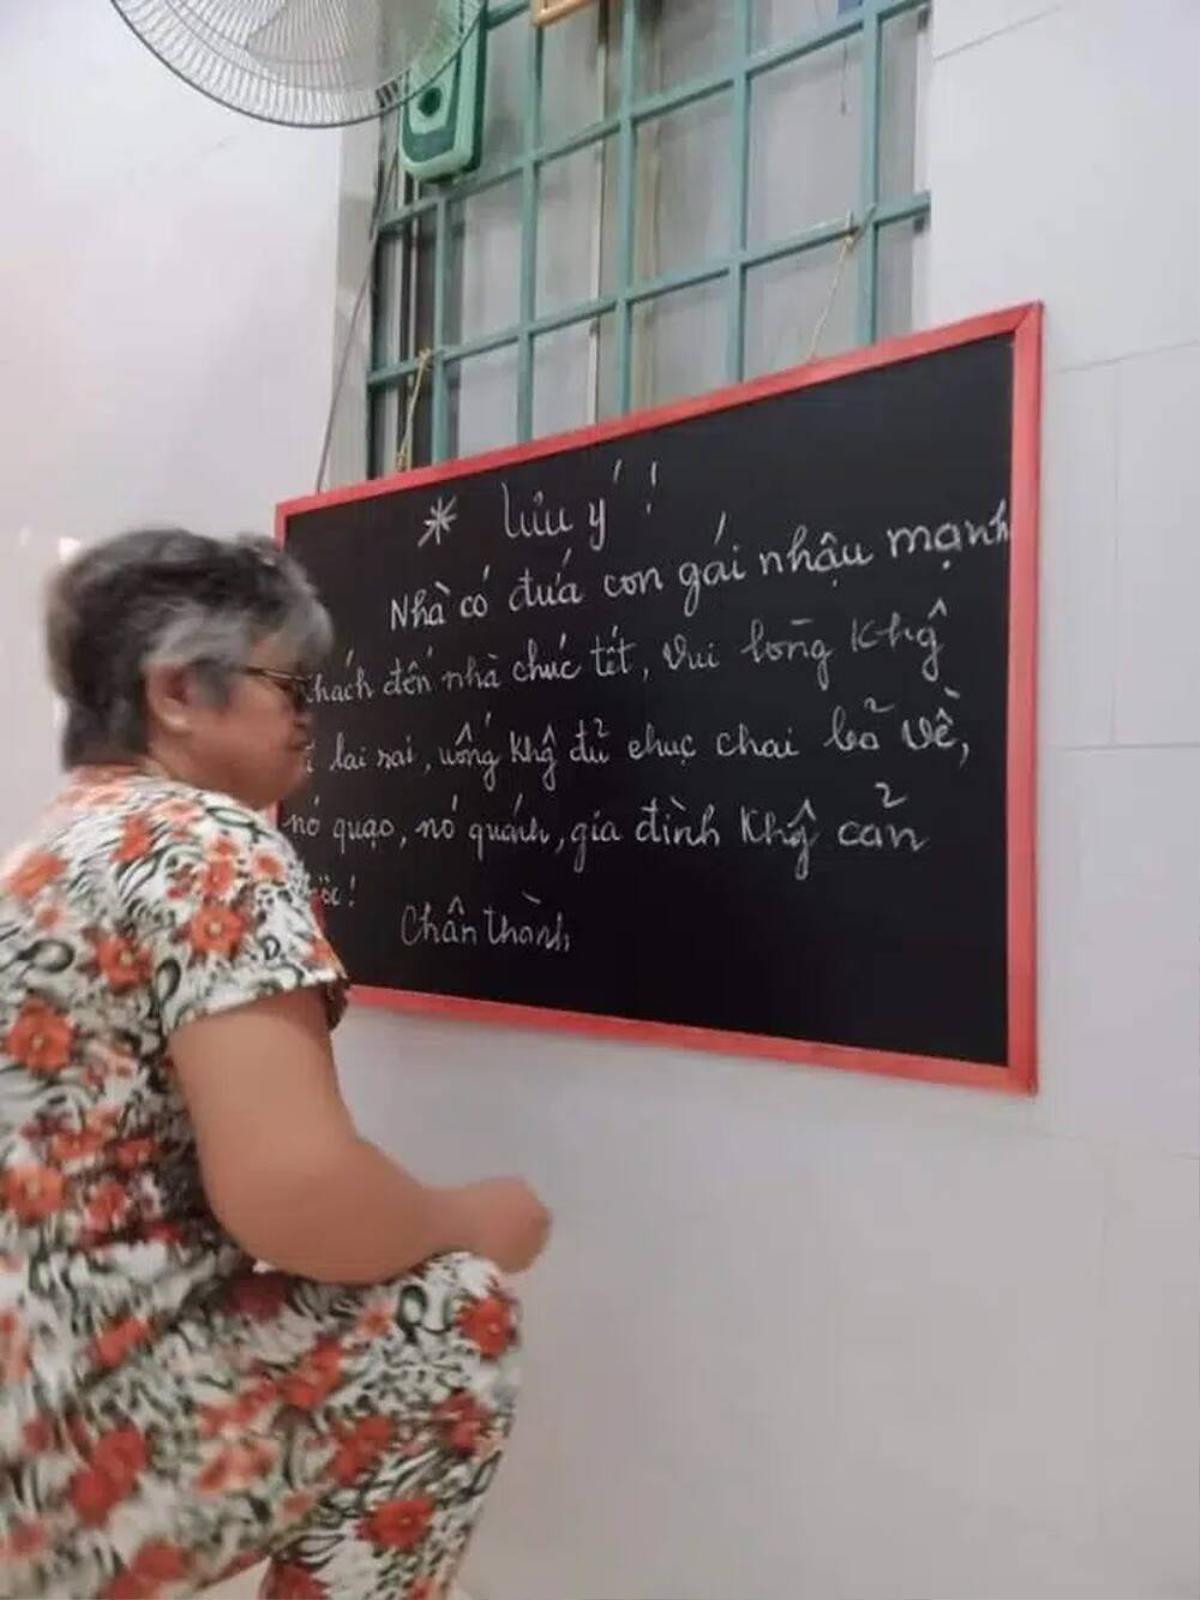 * Lưu ý!
Nhà có đứa con gái nhậu mạnh
khách đến nhà chúc tết, vui lòng khô
lai rai, uống khô đủ chục chai bỏ về,
nó quạo, nó quánh, gia đình khô cản
Chân thành